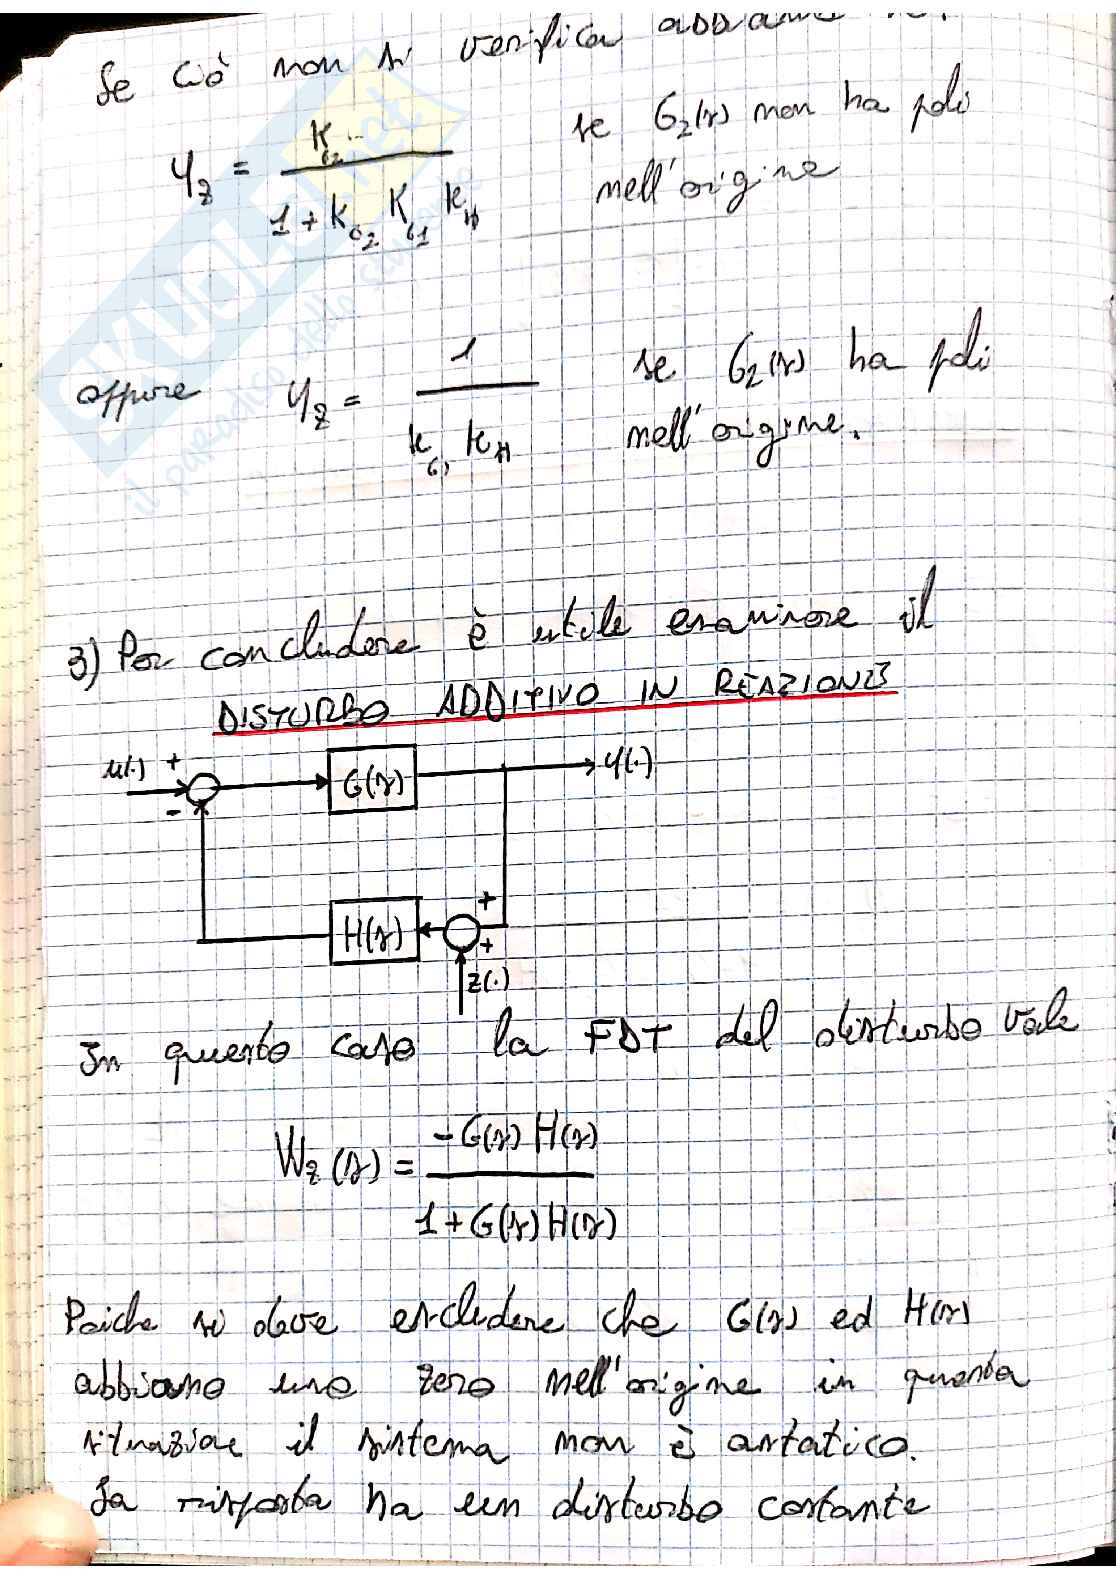 Se ciò non si verifica abbiamo
Yz = KG2 / 1 + KG2 KG1 KH se G2(s) non ha poli
nell'origine
oppure Yz = 1 / KG1 KH se G2(s) ha poli
nell'origine.
3) Per concludere è utile esaminare il
DISTURBO ADDITIVO IN REAZIONE
u(.) + - G(s) y(.)
H(s) + +
z(.)
In questo caso la FDT del disturbo vale
Wz(s) = -G(s) H(s) / 1 + G(s) H(s)
Poiche si deve escludere che G(s) ed H(s)
abbiano uno zero nell'origine in questa
situazione il sistema non è astatico.
La risposta ha un disturbo costante
SKUOLA.net
il paradiso dello studente